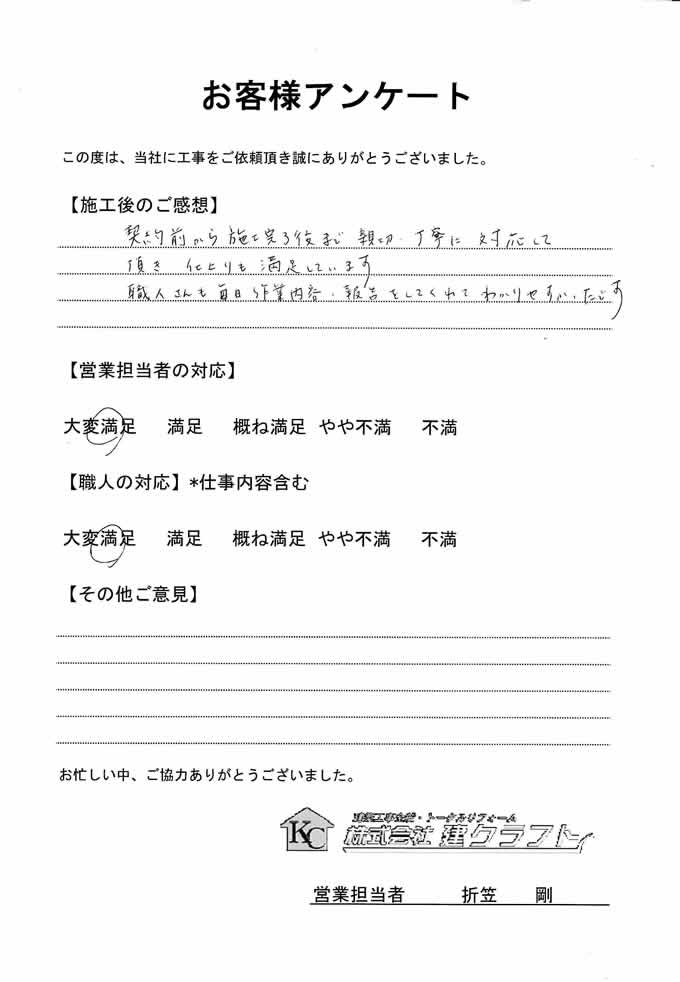 お客様アンケート
この度は、当社に工事をご依頼頂き誠にありがとうございました。
【施工後のご感想】
契約前から施工完了後まで親切・丁寧に対応して
頂き 仕上りも満足しています
職人さんも毎日作業内容・報告をしてくれてわかりやすかったです
【営業担当者の対応】
大変満足 満足 概ね満足 やや不満 不満
【職人の対応】*仕事内容含む
大変満足 満足 概ね満足 やや不満 不満
【その他ご意見】
お忙しい中、ご協力ありがとうございました。
KC
建築工事全般・トータルリフォーム
株式会社 建クラフト
営業担当者 折笠 剛